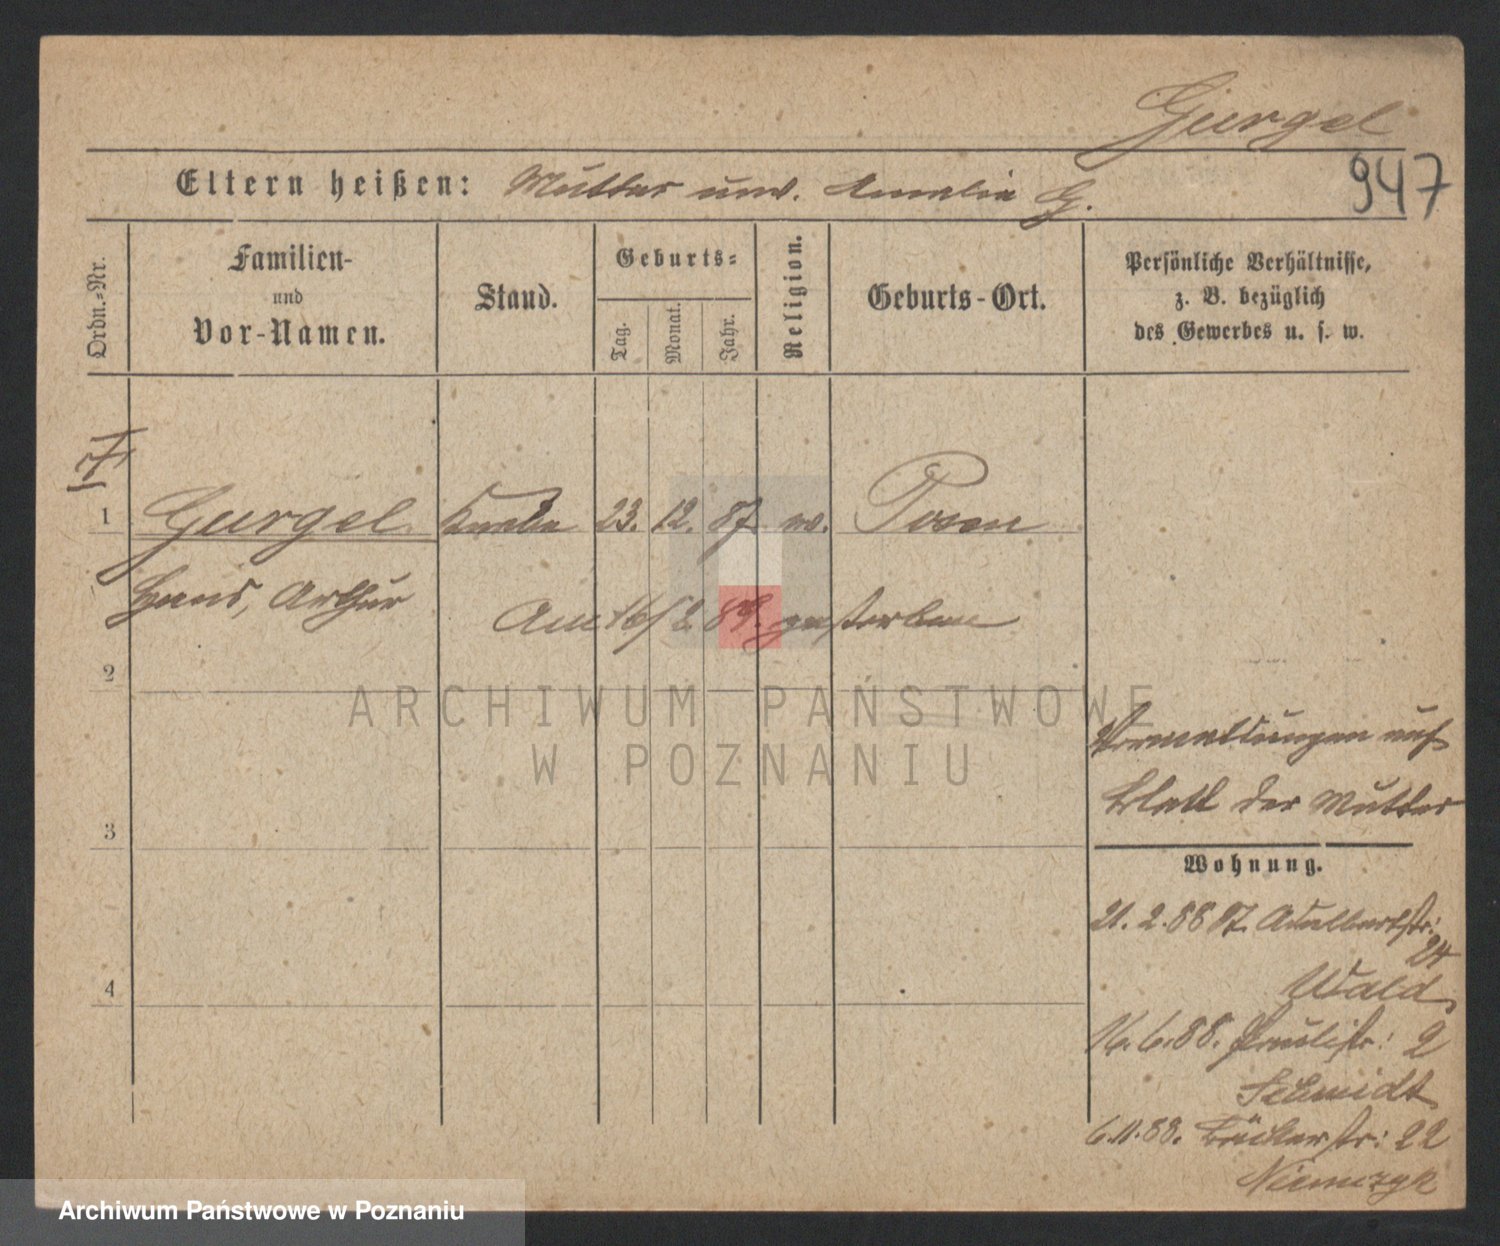 Gurgel
947
Eltern heißen: Mutter unv. Amalie G.
Ordn.-Nr.
Familien-
und
Vor-Namen.
Stand.
Geburts-
Tag.
Monat.
Jahr.
Religion.
Geburts-Ort.
Persönliche Verhältnisse,
z. B. bezüglich
des Gewerbes u. s. w.
1 Gurgel Knabe 23. 12. 87 Posen
Hans, Arthur
Am 16/2 89. gestorben
2
ARCHIWUM PAŃSTWOWE
W POZNANIU
auf
Blatt der Mutter
3
Wohnung.
21. 2. 88 Adalbertstr:
24
Wald
4
16. 6. 88. Paulistr: 2
Schmidt
6. 11. 88. Bäckerstr: 22
Niemczyk
Archiwum Państwowe w Poznaniu